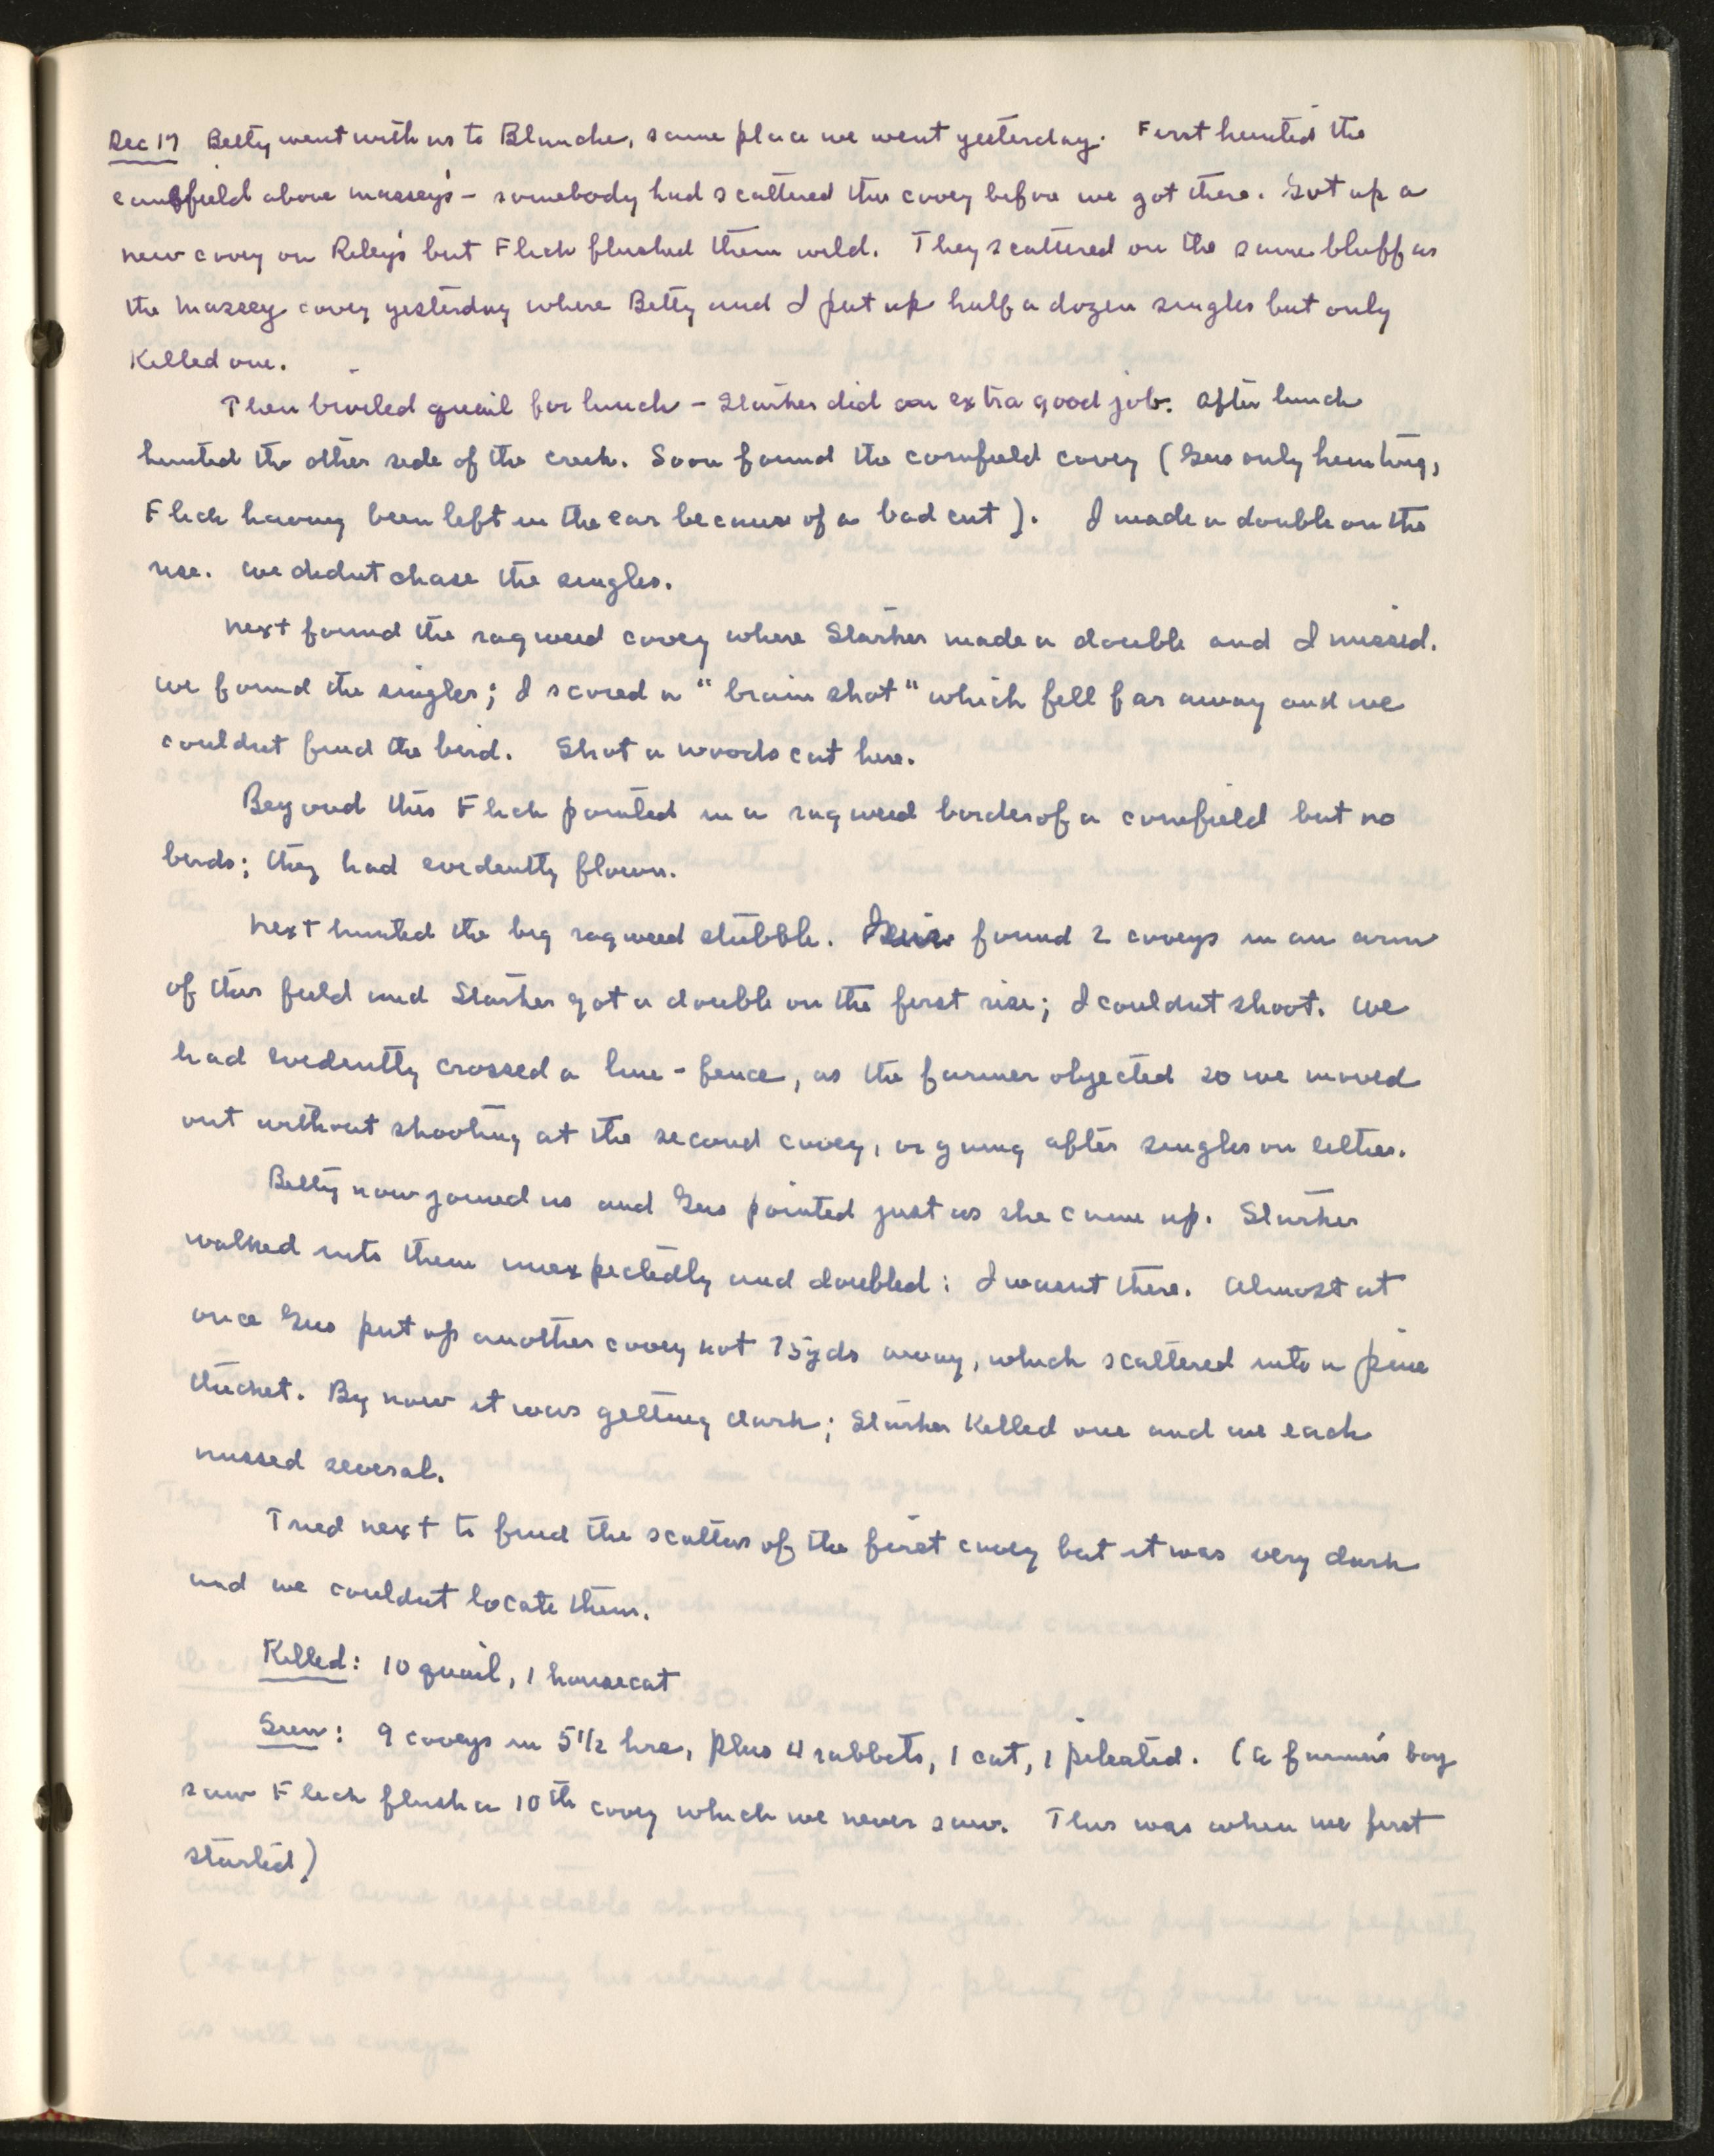 Dec 17 Betty went with us to Blanche, same place we went yesterday. First hunted the
cornfield above Massey's - somebody had scattered the covey before we got there. Got up a
new covey on Riley's but Flick flushed them wild. They scattered on the same bluff as
the Massey covey yesterday where Betty and I put up half a dozen singles but only
killed one.
Then broiled quail for lunch - Starker did an extra good job. After lunch
hunted the other side of the creek. Soon found the cornfield covey (Gus only hunting,
Flick having been left in the car because of a bad cut). I made a double on the
rise. We didnt chase the singles.
Next found the ragweed covey where Starker made a double and I missed.
We found the singles; I scored a "brain shot" which fell far away and we
couldnt find the bird. Shot a woods cat here.
Beyond this Flick pointed in a ragweed border of a cornfield but no
birds; they had evidently flown.
Next hunted the big ragweed stubble. found 2 coveys in an arm
of this field and Starker got a double on the first rise; I couldnt shoot. We
had evidently crossed a line-fence, as the farmer objected so we moved
out without shooting at the second covey, or going after singles on either.
Betty now joined us and Gus pointed just as she came up. Starker
walked into them unexpectedly and doubled: I wasnt there. Almost at
once Gus put up another covey not 75yds away, which scattered into a pine
thicket. By now it was getting dark; Starker killed one and we each
missed several.
Tried next to find the scatters of the first covey but it was very dark
and we couldnt locate them.
Killed: 10 quail, 1 housecat
Seen: 9 coveys in 5 1/2 hrs, plus 4 rabbits, 1 cat, 1 pileated. (A farmer's boy
saw Flick flush a 10th covey which we never saw. This was when we first
started)